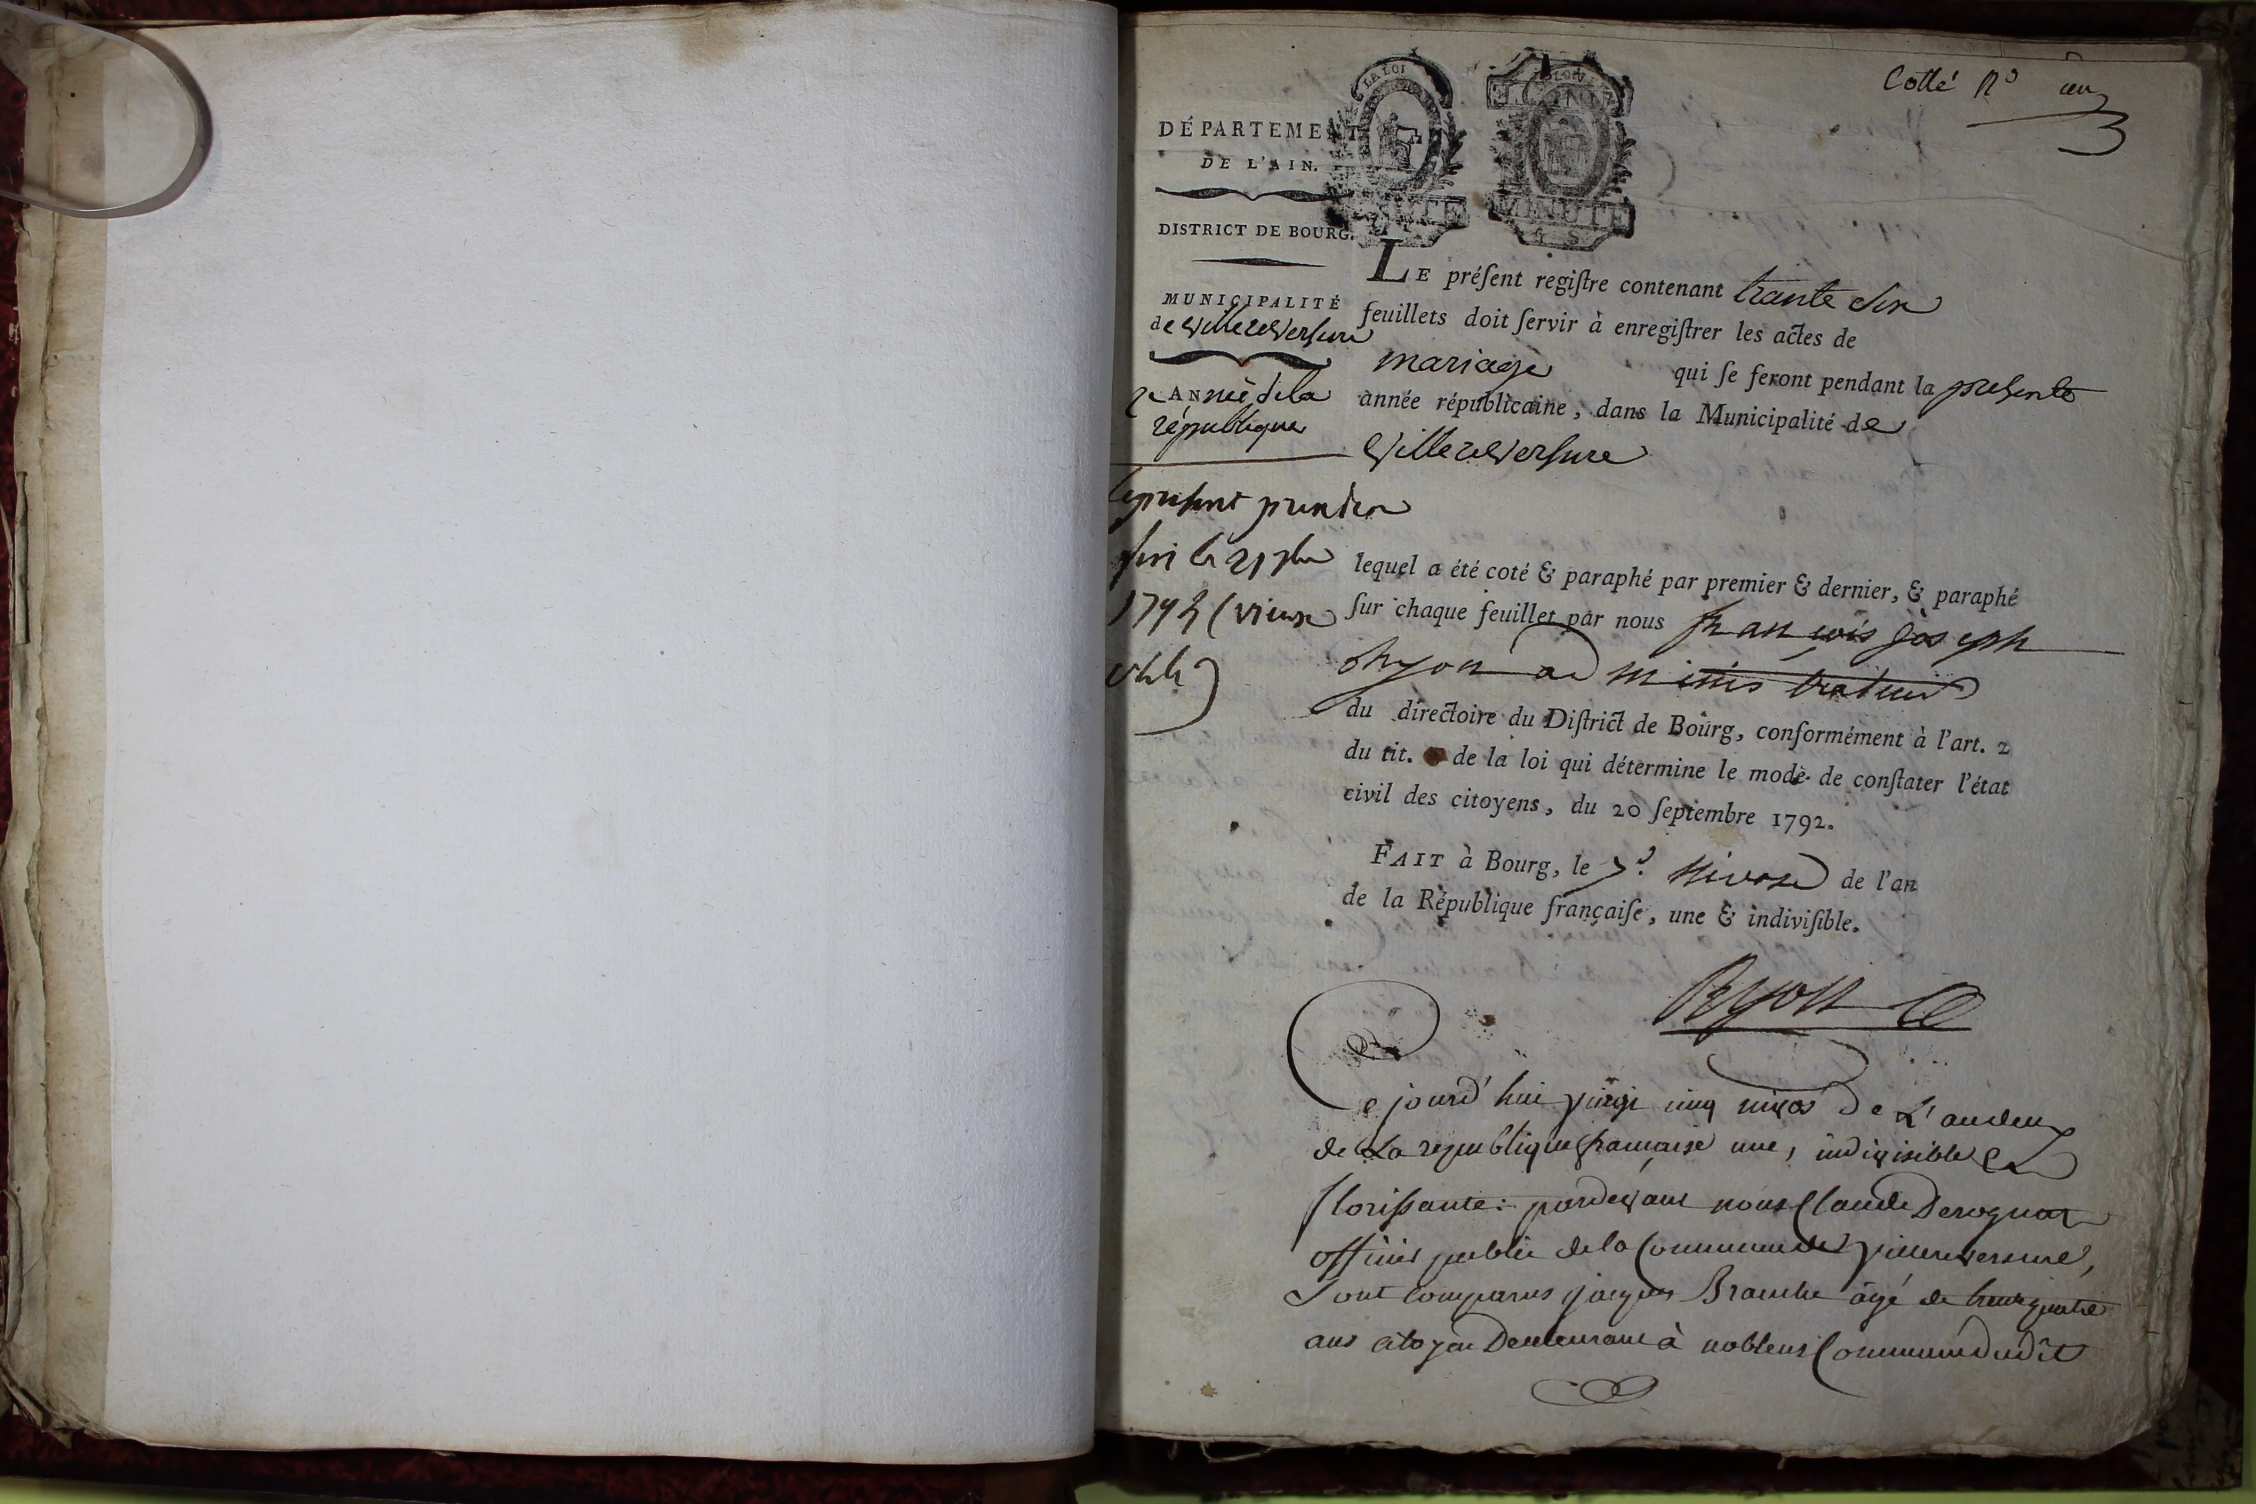 Cotté No un
LA LOI
MINUTE
5 S
DÉPARTEMENT
DE L'AIN.
DISTRICT DE BOURG.
MUNICIPALITÉ
de Villereversure
2e ANnée de la
république
LE préſent regiſtre contenant trante six
feuillets doit ſervir à enregiſtrer les actes de
mariage qui ſe feront pendant la presente
année républicaine, dans la Municipalité de
Villereversure
le present prendra
fini le 21 7bre
(vieux
stile)
lequel a été coté & paraphé par premier & dernier, & paraphé
ſur chaque feuillet par nous françois joseph
administrateur
du directoire du Diſtrict de Bourg, conformément à l'art. 2
du tit. de la loi qui détermine le mode de conſtater l'état
civil des citoyens, du 20 Septembre 1792.
FAIT à Bourg, le nivose de l'an
de la République françaiſe, une & indiviſible.
Ce jourd'hui vingt cinq nivos de L'an deux
de La republique francaise une, indivisible et
florissante: pardevant nous Claude Derognat
officier public de la Commune de villereversure,
Sont comparus jacques Branche âgé de trente quatre
ans citoyen Demeurant à noblens Commune dudit